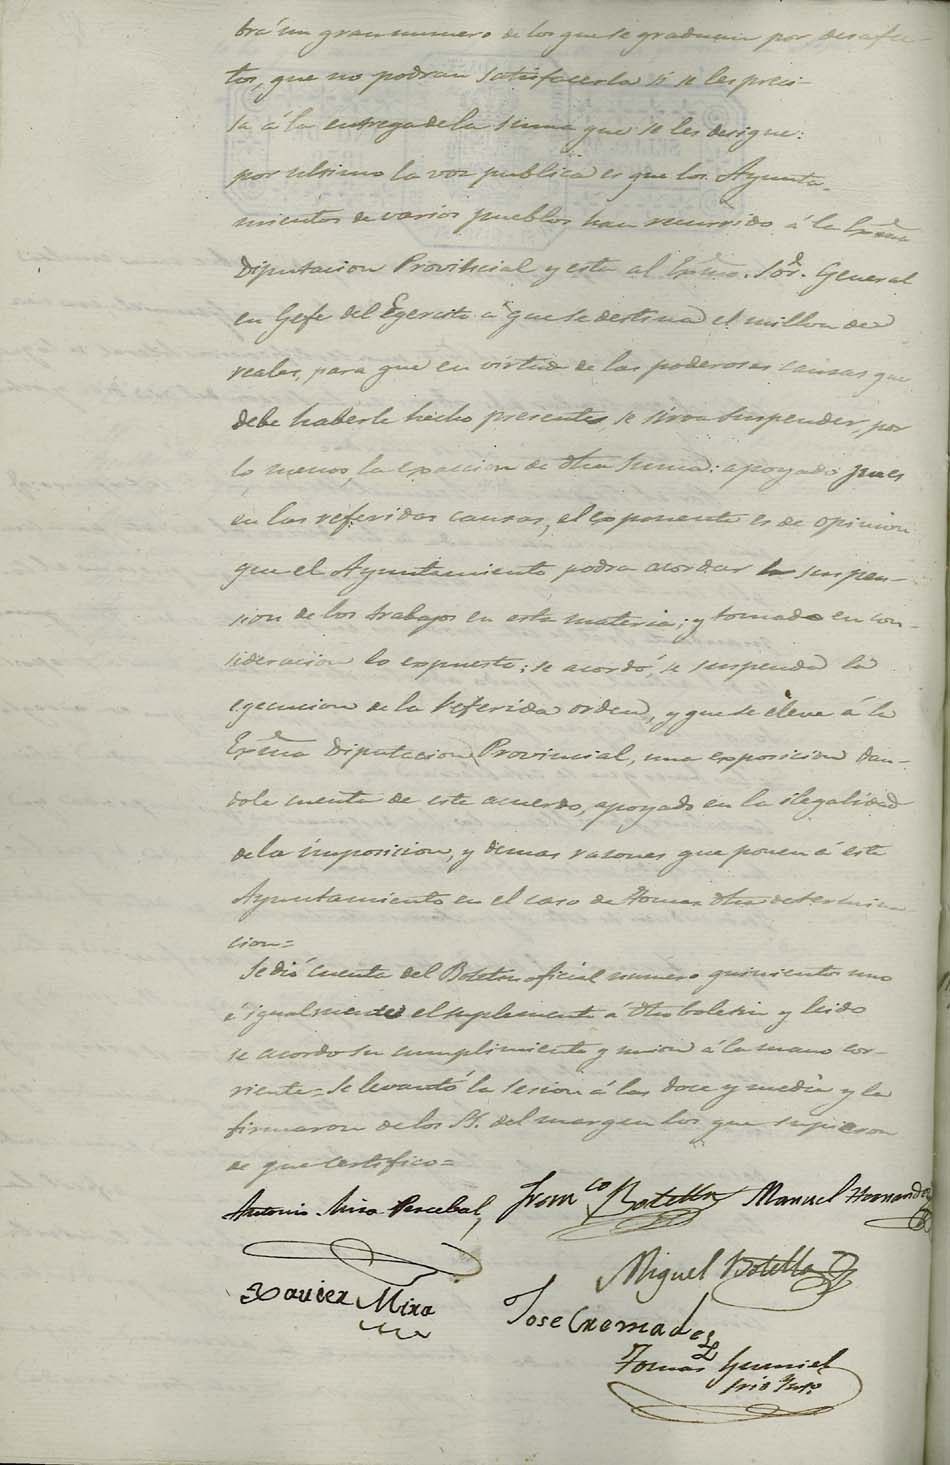 brá un gran numero de los que se graduan por desafec-
tos, que no podran satisfacerla si se les preci-
sa á la entrega de la suma que se les designe:
por ultimo la voz publica es que los Ayunta-
mientos de varios pueblos han recurrido á la Exma
Diputacion Provincial y esta al Exmo. Sor. General
en Gefe del Egercito á que se destina el millon de
reales, para que en virtud de las poderosas causas que
debe haberle hecho presentes, se sirva suspender, por
lo menos, la exaccion de dha suma: apoyado pues
en las referidas causas, el exponente es de opinion
que el Ayuntamiento podra acordar la suspen-
sion de los trabajos en esta materia; y tomado en con-
sideracion lo expuesto; se acordó, se suspenda la
egecucion de la referida orden, y que se eleve á la
Exma Diputacion Provincial, una exposicion dan-
dole cuenta de este acuerdo, apoyado en la ilegalidad
de la imposicion, y demas razones que ponen á este
Ayuntamiento en el caso de tomar dha determina-
cion=
Se dió cuenta del Boletin oficial numero quinientos uno
é igualmente el suplemento á dho boletin y leido
se acordo su cumplimiento y union á la mano cor-
riente= Se levantó la sesion á las doce y media y la
firmaron de los SS. del margen los que supieron
de que certifico=
Antonio Mira Percebal, Franco Botella Manuel Hernandez
Miguel Botella
Xavier Mira
Jose Cremades
Tomas
Srio